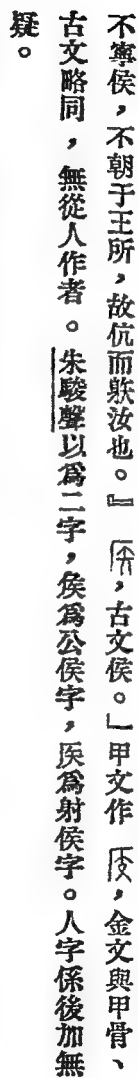 不寧侯，不朝于王所，故伉而䠶汝也。』𥎦，古文侯。」甲文作，金文與甲骨、
古文略同，無從人作者。朱駿聲以爲二字，矦爲公侯字，𥎦爲射侯字。人字係後加無
疑。